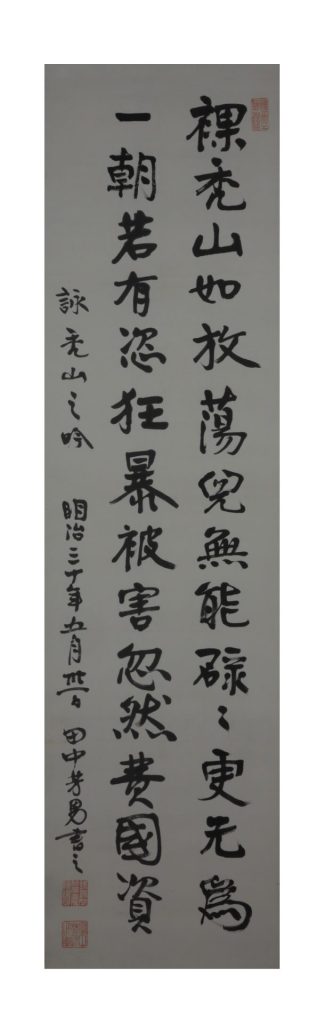 裸禿山如放蕩兒無能碌〻更无為
一朝若有恣狂暴被害忽然費國資
詠禿山之吟 明治三十年五月 田中芳男書之